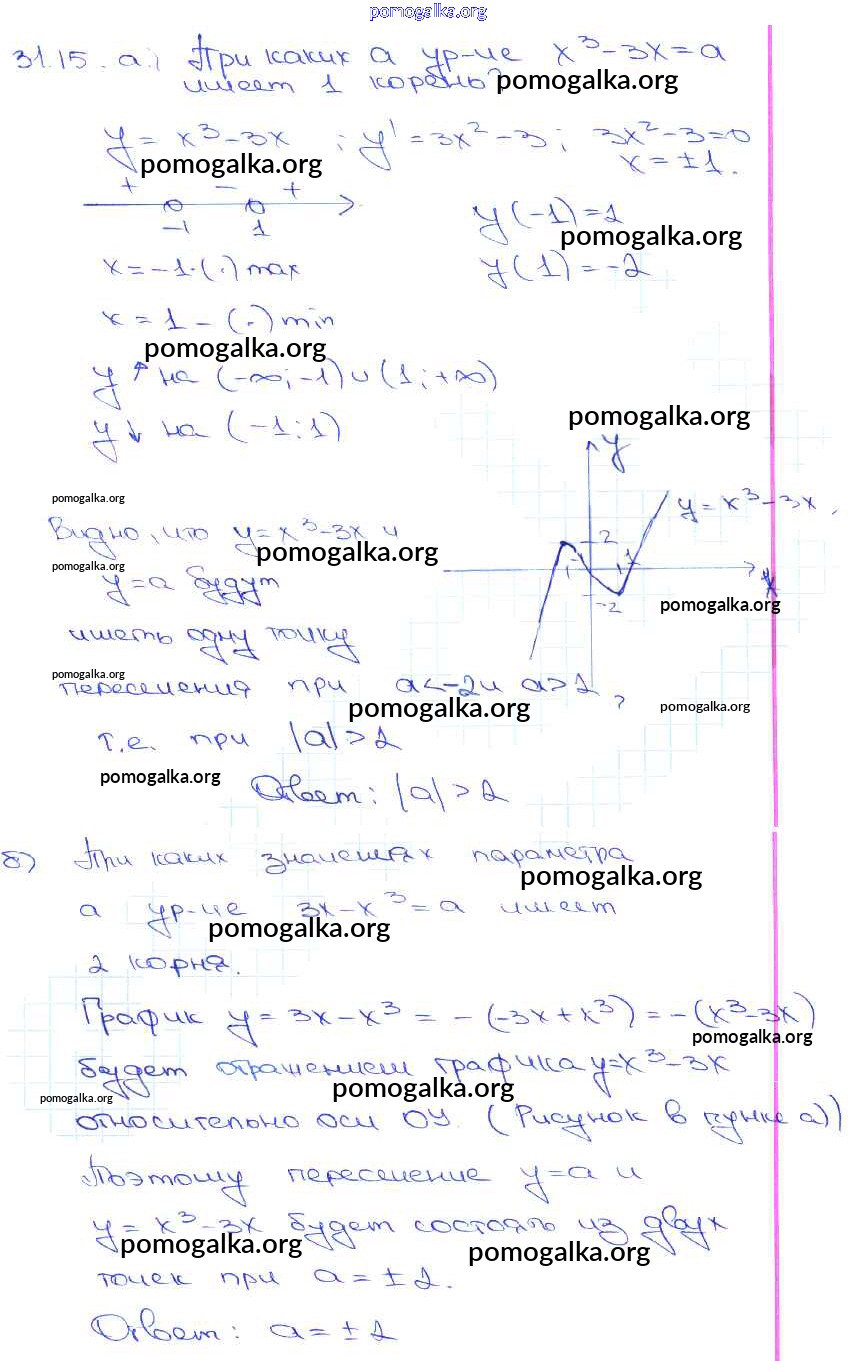 pomogalka.org
31.15. а.) При каких а ур-ие x³-3x=a
имеет 1 корень? pomogalka.org
y = x³-3x ; y' = 3x²-3 ; 3x²-3=0
pomogalka.org x=±1.
+ - +
-1 1 y(-1)=2
pomogalka.org
x=-1-(.) max y(1)=-2
x = 1 - (.) min
pomogalka.org
y↑ на (-∞;-1)∪(1;+∞)
pomogalka.org
y↓ на (-1;1)
y
pomogalka.org
y=x³-3x,
Видно, что y=x³-3x и
2
pomogalka.org
-1 1 x
pomogalka.org
y=a будут
-2
pomogalka.org
иметь одну точку
pomogalka.org
пересечения при a<-2 и a>2,
pomogalka.org pomogalka.org
т.е. при |a|>2
pomogalka.org
Ответ: |a|>2
б) При каких значениях параметра
pomogalka.org
а ур-ие 3x-x³=a имеет
pomogalka.org
2 корня.
График y=3x-x³=-(-3x+x³)=-(x³-3x)
pomogalka.org
будет отражением графика y=x³-3x
pomogalka.org pomogalka.org
относительно оси OY. (Рисунок в пункте а))
Поэтому пересечение y=a и
y=x³-3x будет состоять из двух
pomogalka.org pomogalka.org
точек при a=±2.
Ответ: a=±2